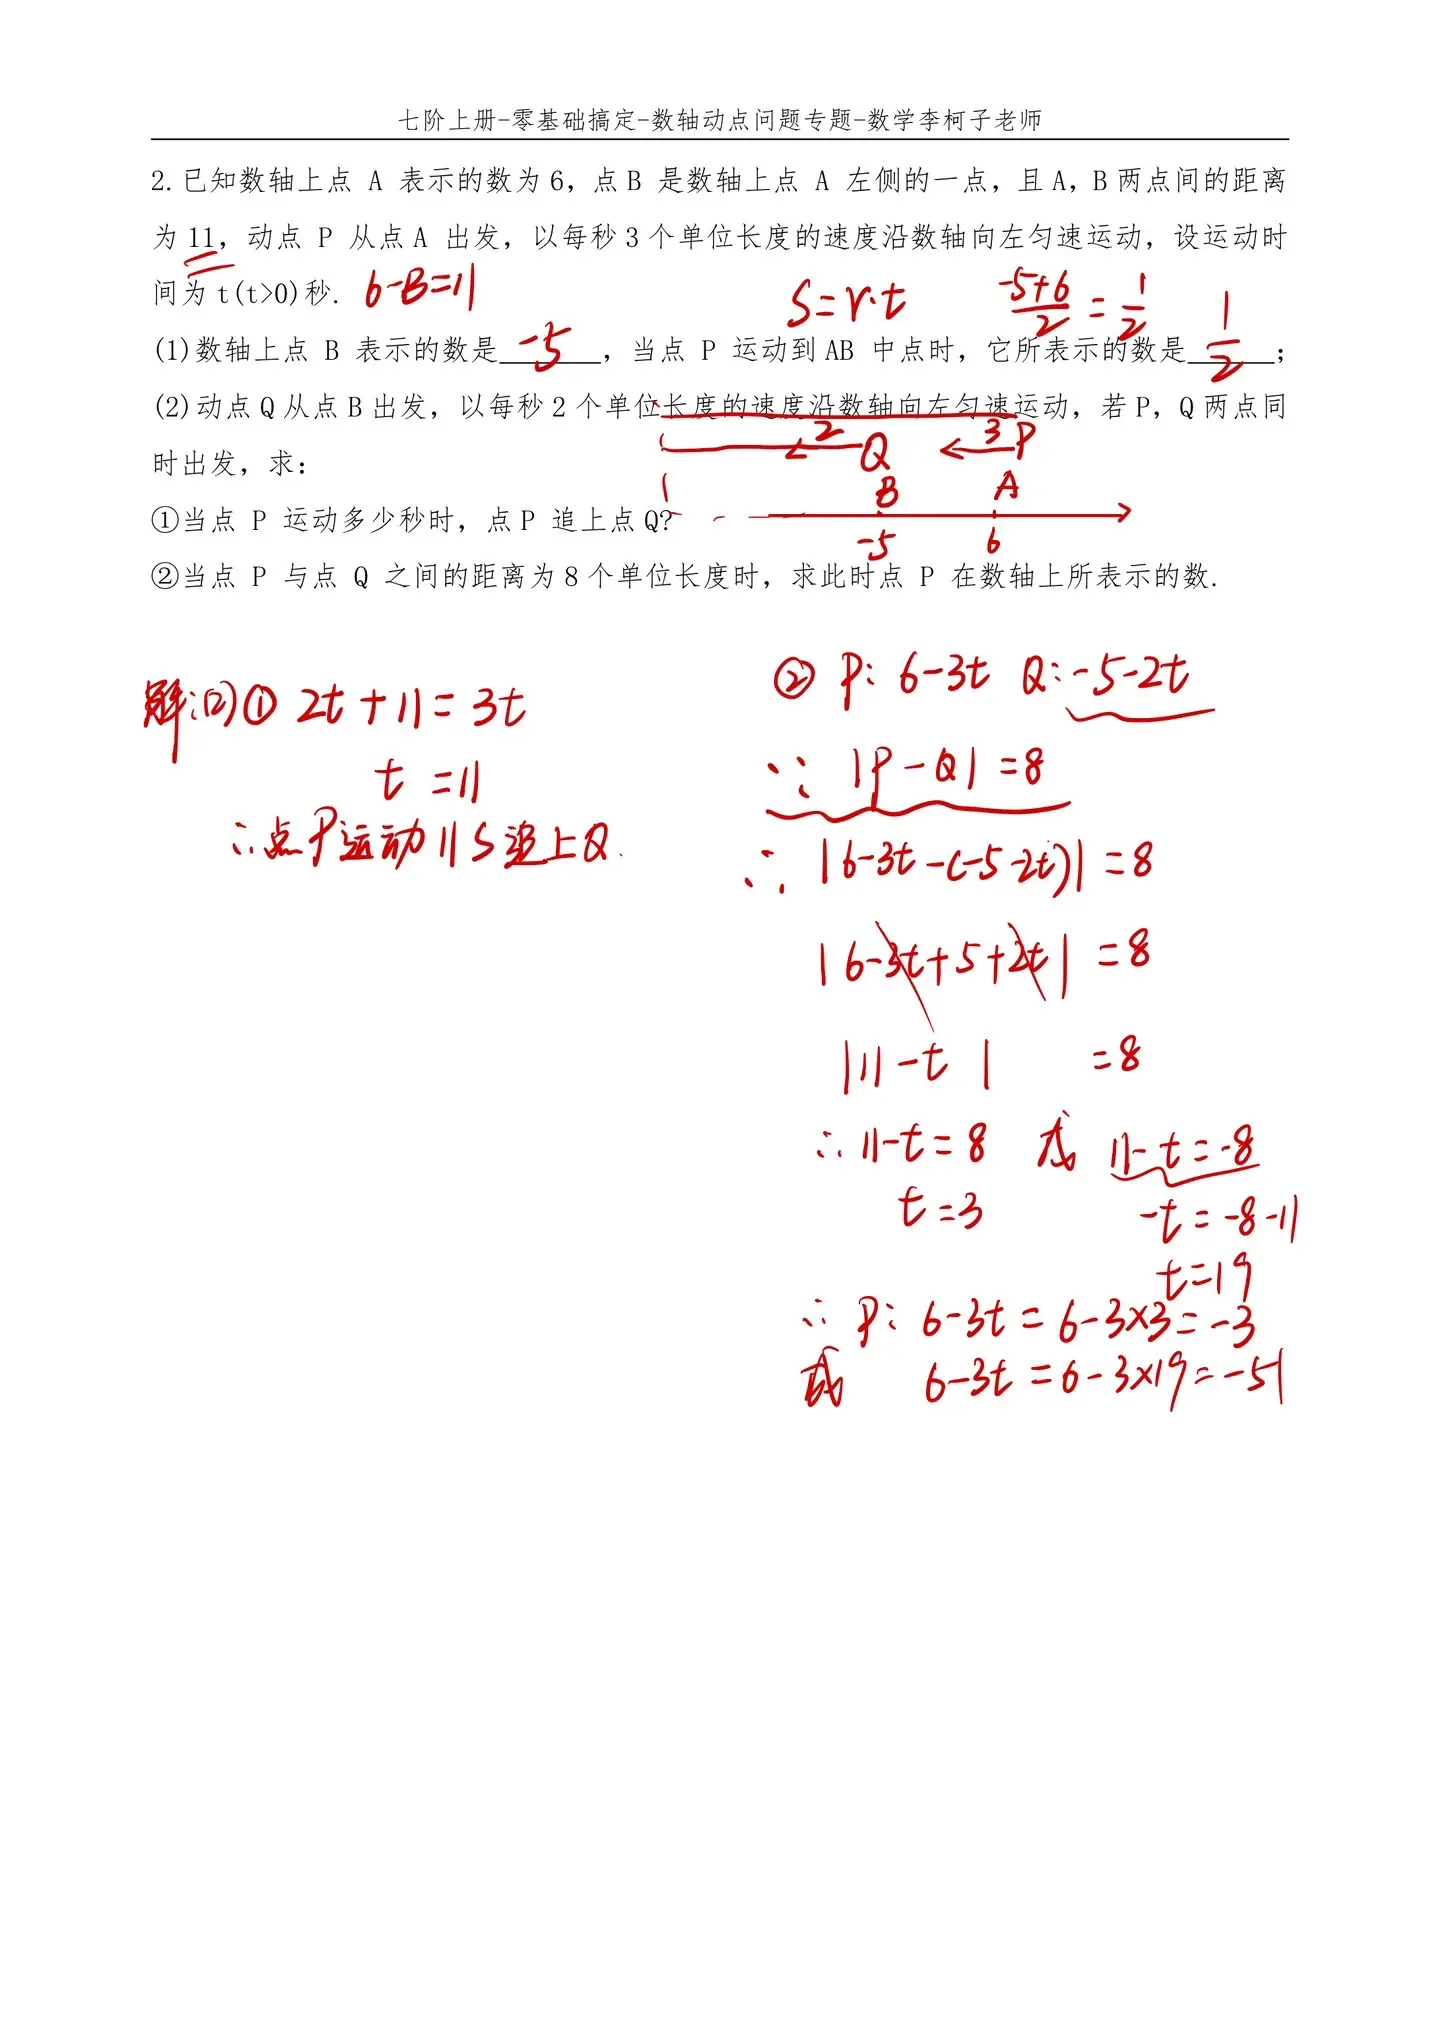 七阶上册-零基础搞定-数轴动点问题专题-数学李柯子老师
2.已知数轴上点 A 表示的数为6，点B 是数轴上点 A 左侧的一点，且A，B两点间的距离
为11，动点 P 从点A 出发，以每秒3个单位长度的速度沿数轴向左匀速运动，设运动时
间为t(t>0)秒.
6-B=11
S=v·t
(-5+6)/2=1/2
(1)数轴上点 B 表示的数是 -5 ，当点 P 运动到AB 中点时，它所表示的数是 1/2 ；
(2)动点Q从点B出发，以每秒2个单位长度的速度沿数轴向左匀速运动，若P，Q两点同
时出发，求：
2 Q 3 P
B A
-5 6
①当点 P 运动多少秒时，点P 追上点Q?
②当点 P 与点 Q 之间的距离为8个单位长度时，求此时点 P 在数轴上所表示的数.
解:(2)① 2t+11=3t
t=11
∴点P运动11S追上Q.
② P: 6-3t Q: -5-2t
∵ |P-Q|=8
∴ |6-3t-(-5-2t)|=8
|6-3t+5+2t|=8
|11-t|=8
∴11-t=8 或 11-t=-8
t=3 -t=-8-11
t=19
∴ P: 6-3t=6-3×3=-3
或 6-3t=6-3×19=-51